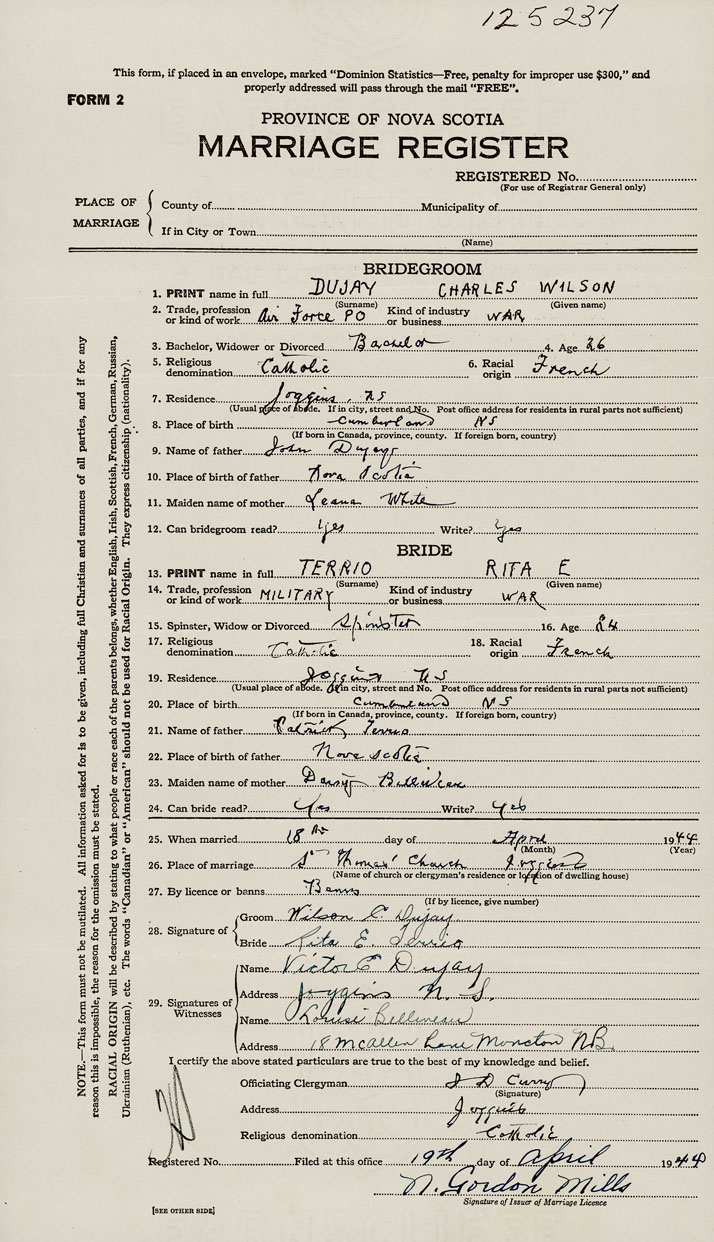 125237
This form, if placed in an envelope, marked "Dominion Statistics—Free, penalty for improper use $300," and
properly addressed will pass through the mail "FREE".
FORM 2
PROVINCE OF NOVA SCOTIA
MARRIAGE REGISTER
REGISTERED No.
(For use of Registrar General only)
PLACE OF MARRIAGE
County of Municipality of
If in City or Town
(Name)
BRIDEGROOM
1. PRINT name in full DUJAY CHARLES WILSON
(Surname) (Given name)
2. Trade, profession or kind of work Air Force PO Kind of industry or business WAR
3. Bachelor, Widower or Divorced Bachelor 4. Age 26
5. Religious denomination Catholic 6. Racial origin French
7. Residence Joggins, NS
(Usual place of abode. If in city, street and No. Post office address for residents in rural parts not sufficient)
8. Place of birth Cumberland NS
(If born in Canada, province, county. If foreign born, country)
9. Name of father John Dujay
10. Place of birth of father Nova Scotia
11. Maiden name of mother Leana White
12. Can bridegroom read? Yes Write? Yes
BRIDE
13. PRINT name in full TERRIO RITA E
(Surname) (Given name)
14. Trade, profession or kind of work MILITARY Kind of industry or business WAR
15. Spinster, Widow or Divorced Spinster 16. Age 24
17. Religious denomination Catholic 18. Racial origin French
19. Residence Joggins NS
(Usual place of abode. If in city, street and No. Post office address for residents in rural parts not sufficient)
20. Place of birth Cumberland NS
(If born in Canada, province, county. If foreign born, country)
21. Name of father Patrick Terrio
22. Place of birth of father Nova Scotia
23. Maiden name of mother Daisy
24. Can bride read? Yes Write? Yes
25. When married 18th day of April 1944
(Month) (Year)
26. Place of marriage St Thomas' Church Joggins
(Name of church or clergyman's residence or location of dwelling house)
27. By licence or banns Banns
(If by licence, give number)
28. Signature of
Groom Wilson C. Dujay
Bride Rita E. Terrio
29. Signatures of Witnesses
Name Victor E Dujay
Address Joggins N. S.
Name Louise Belliveau
Address 18 McAllen Lane Moncton NB.
I certify the above stated particulars are true to the best of my knowledge and belief.
Officiating Clergyman J D Curry
(Signature)
Address Joggins
Religious denomination Catholic
Registered No. Filed at this office 19th day of April 1944
N. Gordon Mills
Signature of Issuer of Marriage Licence
[SEE OTHER SIDE]
NOTE.—This form must not be mutilated. All information asked for is to be given, including full Christian and surnames of all parties, and if for any
reason this is impossible, the reason for the omission must be stated.
RACIAL ORIGIN will be described by stating to what people or race each of the parents belongs, whether English, Irish, Scottish, French, German, Russian,
Ukrainian (Ruthenian), etc. The words "Canadian" or "American" should not be used for Racial Origin. They express citizenship (nationality).